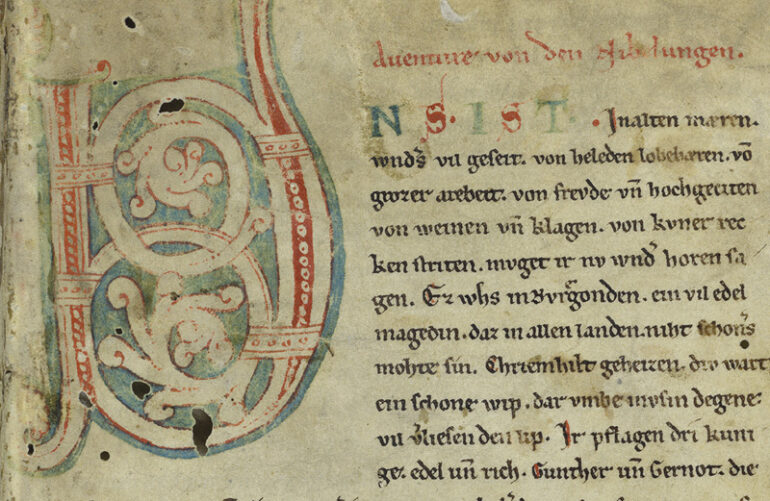 Aventure von den Nibelungen.
VNS. IST. In alten mæren.
wnds vil geseit. von heleden lobebæren. vō
grozer arebeit. von frevde vn̄ hochgeciten
von weinen vn̄ klagen. von kvner rec
ken striten. mvget ir nv wnd͛ horen sa
gen. Ez whs in Bvrgonden. ein vil edel
magedin. daz in allen landen. niht schon͛s
mohte sin. Chriemhilt geheizen. div wart
ein schone wip. dar vmbe mvsin degene
vil v͛liesen den lip. Ir pflagen dri kuni
ge. edel vn̄ rich. Gunther vn̄ Gernot. die